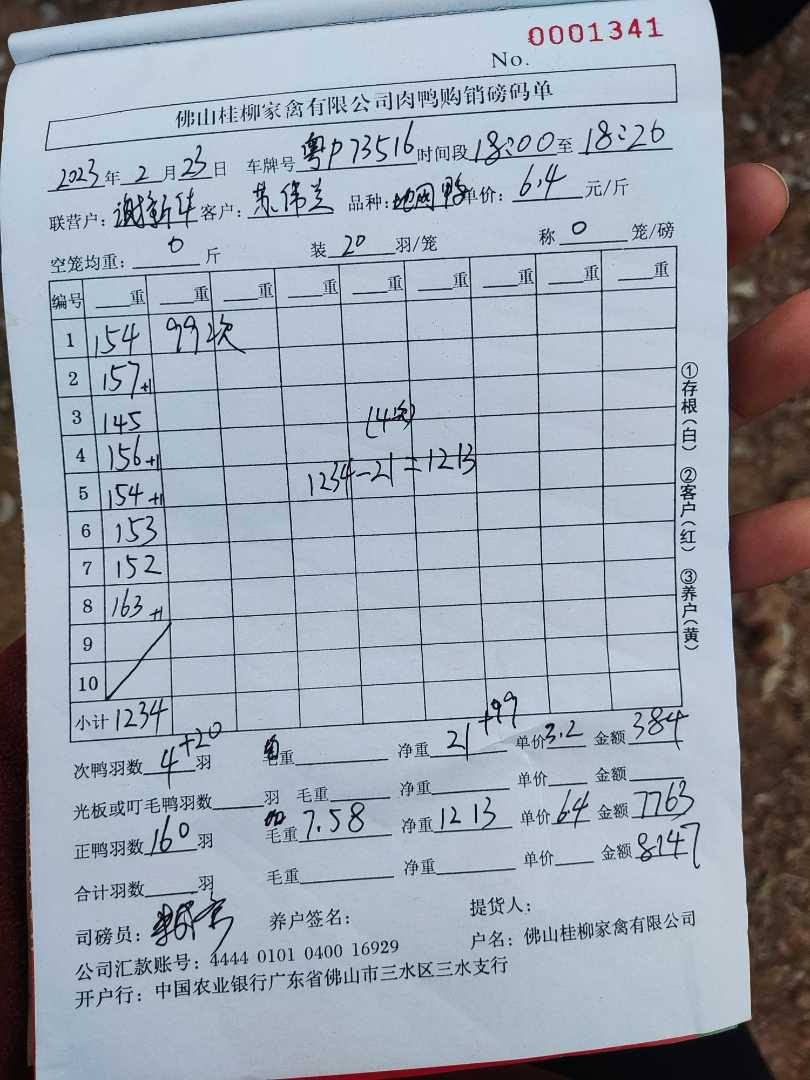 No. 0001341
佛山桂柳家禽有限公司肉鸭购销磅码单
2023年2月23日 车牌号粤P73516时间段18:00至18:26
联营户:谢新华客户:苏伟兰 品种: 鸭单价:6.4元/斤
空笼均重:0斤 装20羽/笼 称0笼/磅
编号 重 重 重 重 重 重 重 重
1 154 99次
2 157+1
3 145
(4次)
4 156+1
1234-21=1213
5 154+1
6 153
7 152
8 163+1
9
10
小计 1234
次鸭羽数4+20羽 毛重 净重21+99 单价3.2 金额384
光板或叮毛鸭羽数 羽 毛重 净重 单价 金额
正鸭羽数160羽 毛重7.58 净重1213 单价64 金额7763
合计羽数 羽 毛重 净重 单价 金额8147
司磅员: 养户签名: 提货人:
公司汇款账号:4444 0101 0400 16929 户名:佛山桂柳家禽有限公司
开户行:中国农业银行广东省佛山市三水区三水支行
①存根(白) ②客户(红) ③养户(黄)